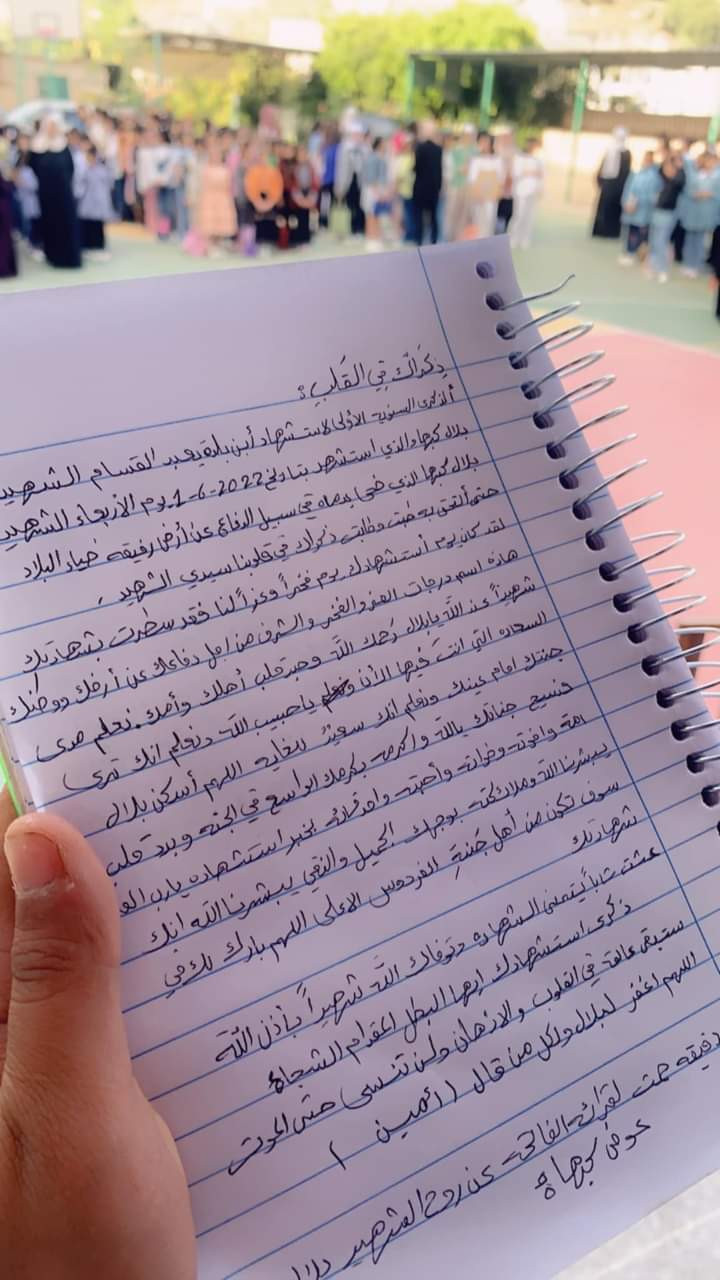 ذِكرَاك فِي القَلبِ:
الذكرى السنوية الأولى لاستشهاد أبن بلدة يعبد القسام الشهيد
بلال كبها والذي استشهد بتاريخ 2022-6-1 يوم الأربعاء الشهيد
بلال كبها الذي ضحى بدماه في سبيل الدفاع عن أرض رفيقه ضياء البلاد
حتى ألتحق به ضلت وظالت ذكراك في قلوبنا سيدي الشهيد ،
لقد كان يوم أستشهادك يوم فخراً وعزاً لنا فقد سطرت بشهادتك
هاذه اسم درجات العز والفخر والشرف من اجل دفاعك عن أرضك ووطنك
شهيداً عند اللّٰه يابلال رحمك اللّٰه وجبر قلب أهلك وأمك. نعلم مدى
السعاده التي انتَ فيها الأن يا حبيب اللّٰه ونعلم انك ترى
جنتك امام عينك ونعلم انك سعيدٌ للغايه اللهم أسكن بلال
فسيح جناتك ياللّٰه واكرمه بكرمك الواسع في الجنه وبرد قلب
امه واخوته وخواته وأحبته واصدقائه بخبر استشهاده يارب
يبشرنا اللّٰه وملائكته بوجهك الجميل والنقي يبشرنا اللّٰه انك
سوف تكون من أهل جَنةِ الفردوس الاعلى اللهم بارك لك في
شهادتك
عشت شاباً يتمنى الشهاده وتوفاك اللّٰه شهيداً بأذن اللّٰة
ذكرى استشهادك ايها البطل المقدام الشجاع
ستبقى عالقة في القلوب والاذهان ولن تنسى حتى الموت
اللهم اغفر لبلال ولكل من قال ( ائمين )
دقيقه صمت لقرائة الفاتحة عن روح الشهيد بلال
عوض كبها